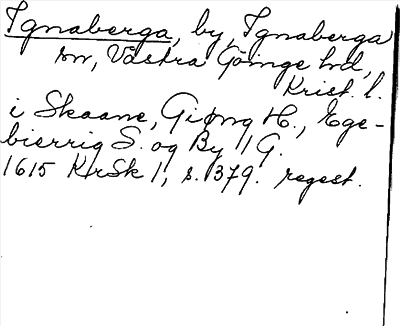 Ignaberga, by, Ignaberga
sn, Västra Göinge hd,
Krist. l.
i Skaane, Giøng H., Ege-
bierrig S. og By 1 G.
1615 KrSk 1, s. 379. regest.